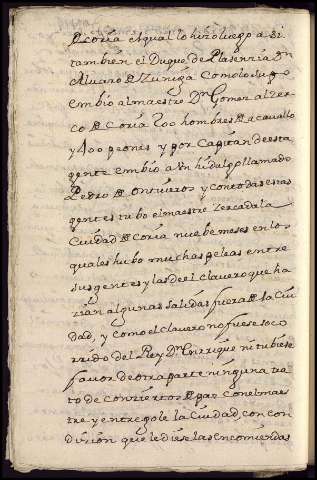 De coria el qual lo hizo luego assi
tambien el Duque de Plasencia Dn
Alvaro De Zuñiga Como lo supo
embio al maestro Dn Gomez al zer
co De Coria 200 hombres De a cavallo
y 400 peones y por Capitan de esta
gente embio a un hidalgo llamado
Pedro De Ontiveros y con todas estas
gentes tubo el maestre zercada la
Ciudad De Coria nuebe meses en los
quales hubo muchas peleas entre
sus gentes y las del clavero que ha
zian algunas salidas fuera De la Ciu
dad, y como el clavero no fuese soco
rrido del Rey Dn Enrrique ni tubiese
favor de otra parte ninguna tra
to de convierto De paz con el maes
tre y entregole la Ciudad, con con
dizion que le diese las encomiendas